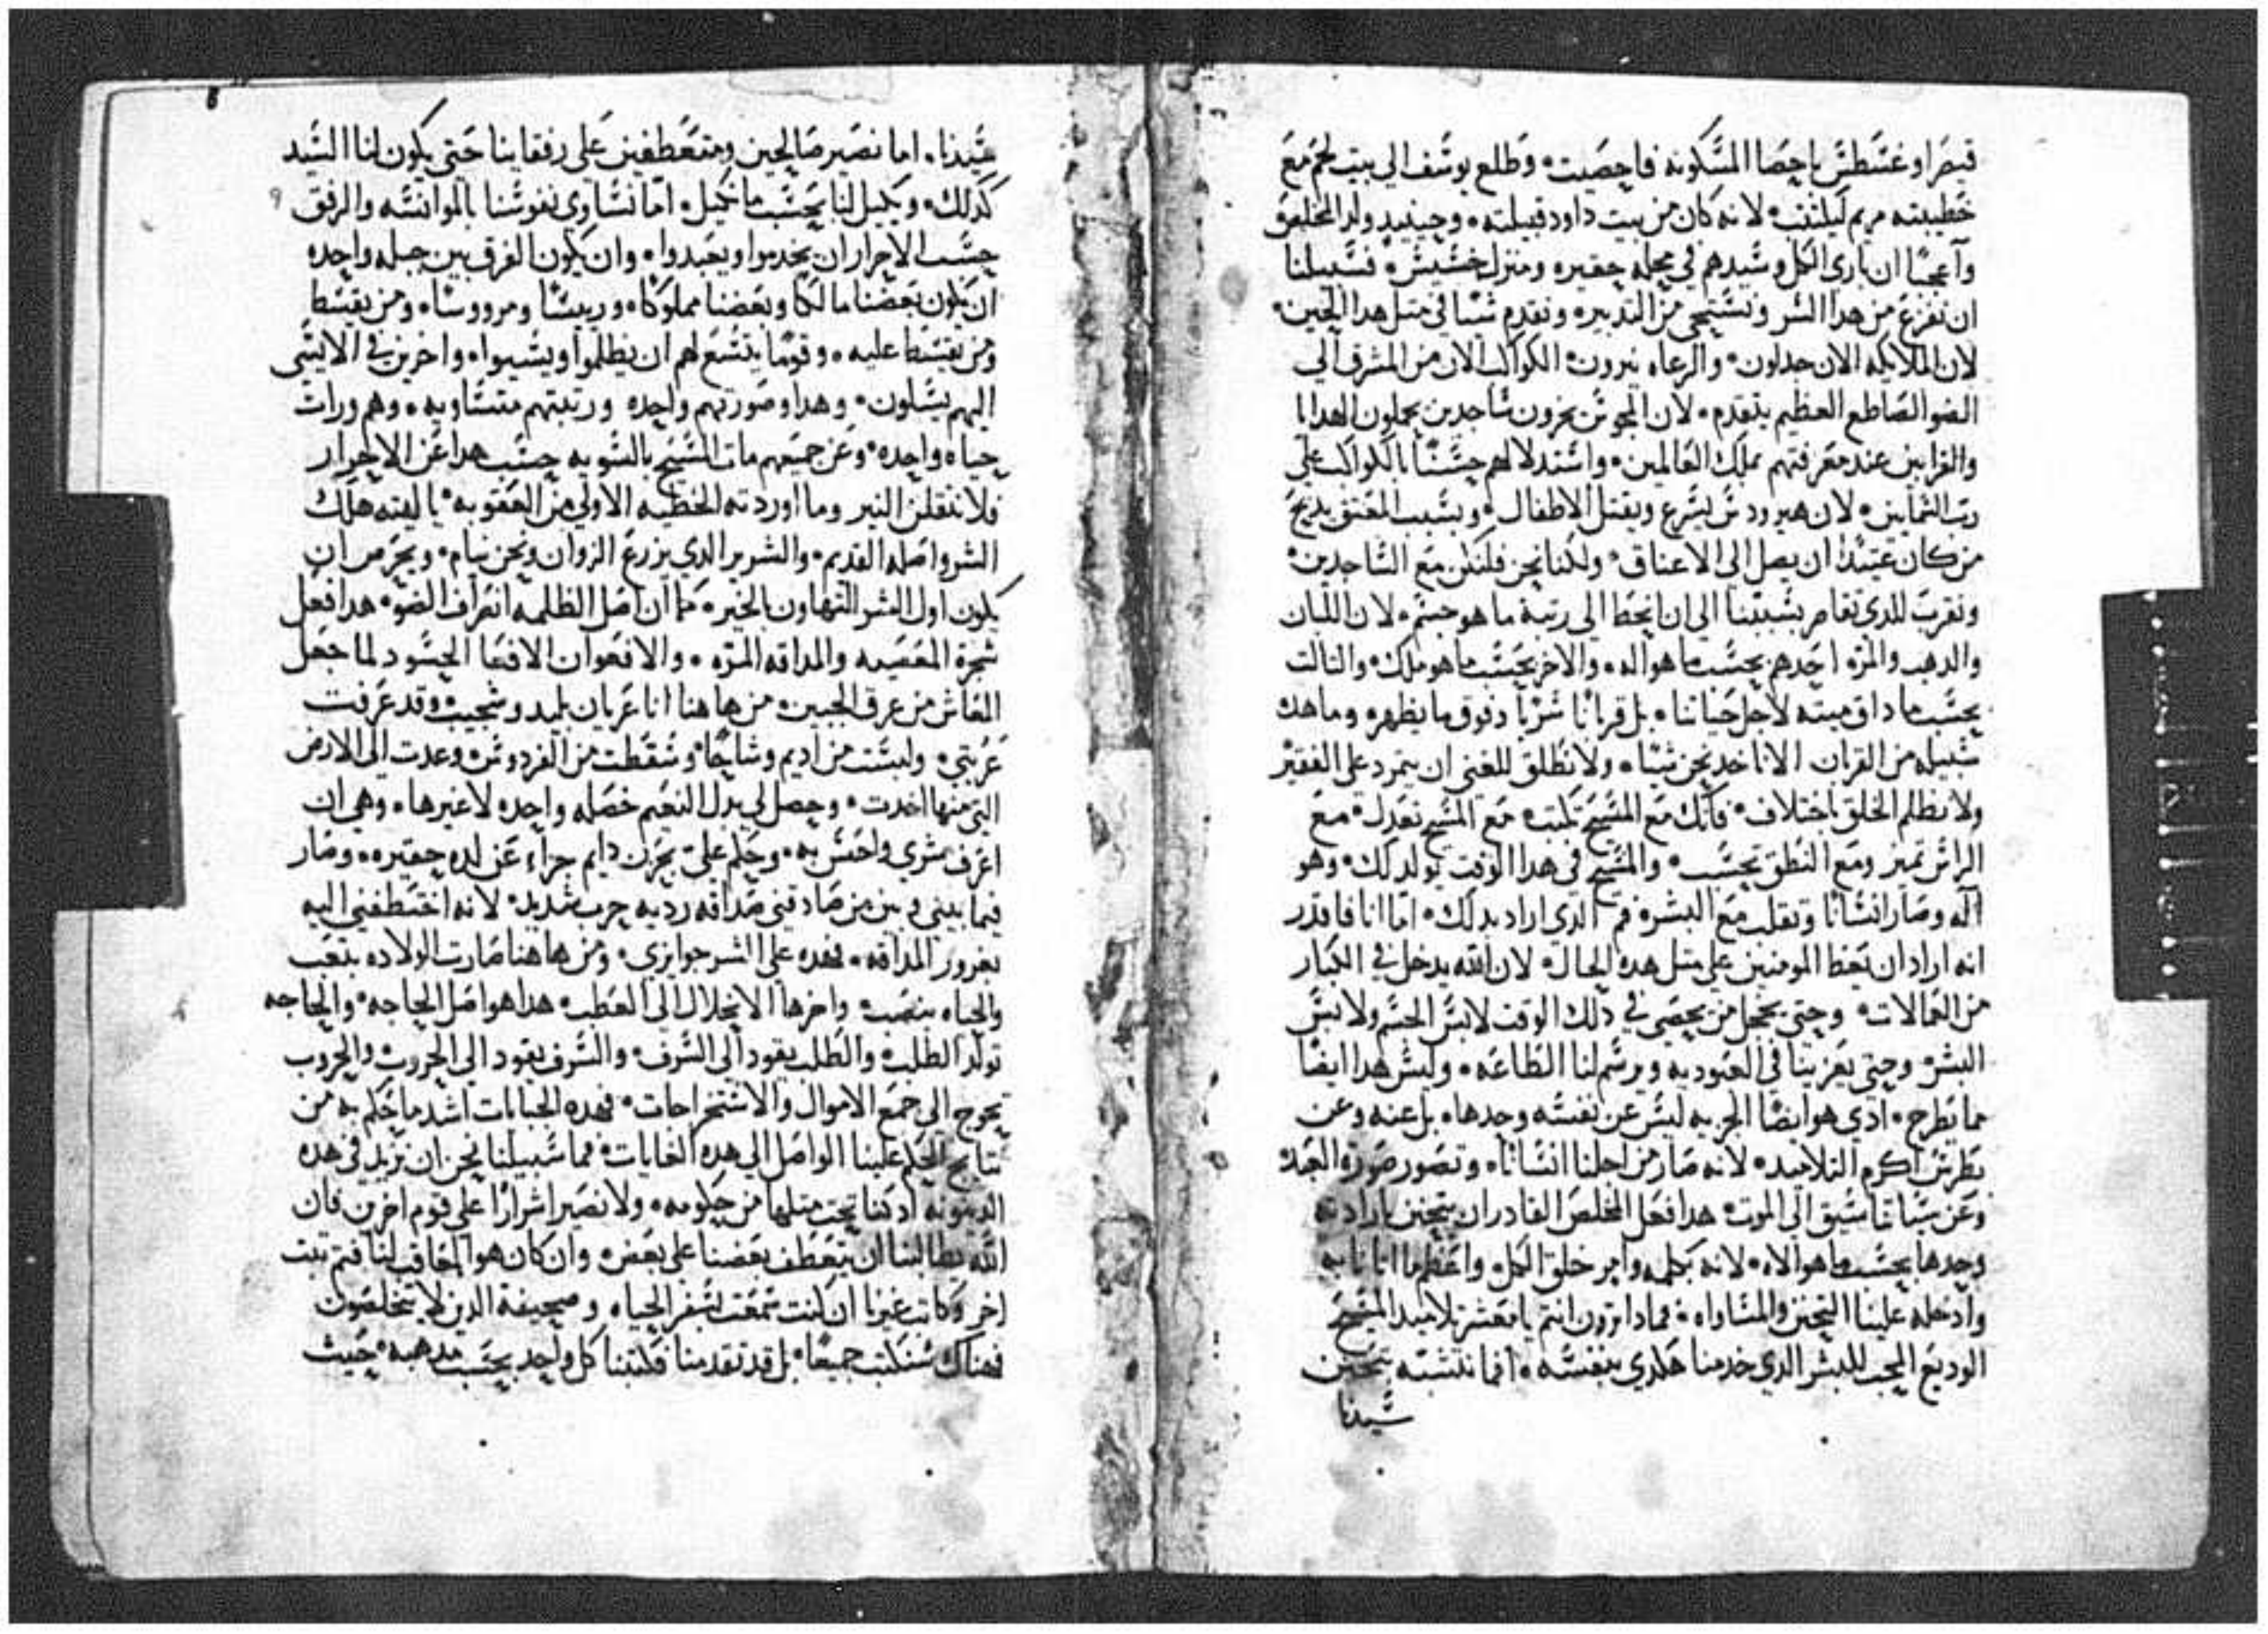 قيصر اوغسطس باحصا المسكونه فاحصيت وطلع يوسف الي بيت لحم مع
خطيبته مريم ليكتتب لانه كان من بيت داود وقبيلته وحينيد ولد المخلص
وآعجبًا ان باري الكل وسيدهم في محله حقيره ومنزل خسيس فسبيلنا
ان نفزع من هدا السر ونستحي من التدبير ونقدم شيًا في متل هدا الحين
لان الملايكه الان جدلون والرعاه نيرون الكواكب الان من المشرق الي
الضو الساطع العظيم يتقدم لان المجوس يخرون ساجدين يحملون الهدايا
والقرابين عند معرفتهم بملك العالمين واستدلالهم حسنًا بالكواكب علي
رب السمايين لان هيرودس يسرع ويقتل الاطفال وبسبب المعتق يديح
من كان عتيدًا ان يصل الي الاعناق ولكنا نحن فلنكن مع الساجدين
ونقرب للدي تقاصر بسببنا الي ان انحط الي رتبة ما هو جسم لان اللبان
والدهب والمره احدهم بحسب ما هو اله والاخر بحسب ما هو ملك والتالت
بحسب ما داق ميته لاجل حياتنا بل قربانًا سريًا وفوق ما يظهر وما هدك
سبيله من القربان الا ناخد نحن شيًا ولا نطلق للغني ان يتمرد علي الفقير
ولا نظلم الخلق باختلاف فانك مع المسيح تكتب مع المسيح تعدل مع
الراس تميز ومع النطق تحسب والمسيح في هدا الوقت يولد لك وهو
اله وصار انسانًا وتقلب مع البشر فمن الدي اراد بدلك امّا انا فاقدر
انه اراد ان يعظ المومنين علي متل هده الحال لان الله يدخل في الكبار
من العمالات وحتي يخجل من يحصي في دلك الوقت لابس الجسم ولابس
البشر وحتي يعزينا في العبوديه ويرسم لنا الطاعه وليس هدا ايضًا
مما يطرح ادي هو ايضًا الجزيه ليس عن نفسه وحدها بل عنه وعن
بطرس اكرم التلاميد لانه صار من اجلنا انسانًا وتصور صوره العبد
وعن سياتنا سيق الي الموت هدا فعل المخلص القادر ان يتحنن بارادته
وحدها بحسب ما هو الاه لانه بكلمه وامر خلق الكل واعظم ما اتانا به
وادخله علينا التحنن والمساواه فمادا ترون انتم يا معشر تلاميد المسيح
الوديع المحب للبشر الدي خدمنا هكدي بنفسه افما نتشبه بتحنن
سيدنا
سيدنا اما نصير صالحين ومتعطفين علي رفقاينا حتي يكون لنا السيد
كدلك ويكيل لنا بحسب ما نكيل امّا نساوي نفوسنا بالموانسه والرفق
حسب الاحرار ان يخدموا ويعبدوا وان يكون الفرق بين جبله واحده
ان يكون بعضنا مالكًا وبعضنا مملوكًا وريسًا ومرووسًا ومن يقسط
ومن يقسط عليه وقومًا يتسع لهم ان يظلموا ويسيوا واخرين في الا يسي
اليهم يسلون وهدا وصورتهم واحده ورتبتهم متساويه وهم ورات
حياه واحده وعن جميعهم مات المسيح بالسويه حسب هدا عن الاحرار
فلا نتقلن النير وما اوردته الخطيه الاولي من العقوبه يا ليته هلك
الشر واصله القديم والشرير الدي يزرع الزوان ونحن نيام ويحرص ان
يكون اول الشر التهاون بالخير كما ان اصل الظلمه انصراف الضو هدا فعل
شجرة المعصيه والمداقه المره والافعوان الافعا الحسود لما جعل
المعاش من عرق الجبين من هاهنا انا عريان بليد وشجيب وقد عرفت
عريتي ولبست من اديم وشاحًا وسقطت من الفردوس وعدت الي الارض
التي منها اخدت وحصل لي بدل النعيم خصله واحده لا غيرها وهي ان
اعرف شري واحس به وحكم عليّ بحزن دايم جزاء عن لده حقيره وصار
فيما بيني وبين من صادقني صداقه رديه حرب شديد لانه اختطفني اليه
بغرور المداقه فهده علي الشر جوايزي ومن هاهنا صارت الولاده بتعب
والحياه بنصب واخرها الانحلال الي العطب هدا هو اصل الحاجه والحاجه
تولد الطلب والطلب يقود الي السرف والسرف يقود الي الحروب والحروب
تحوج الي جمع الاموال والاستخراجات فهده الجبايات اشد ما حكم به من
نتايج الحكم علينا الواصل الي هده الغايات فما سبيلنا نحن ان نزيد في هده
الدينونه اد كنا تحت متلها من حكومه ولا نصير اشرارًا علي قوم اخرين فان
الله يطالبنا ان يتعطف بعضنا علي بعض وان كان هو المعاقب لنا فتم تبت
اخر وكاتب غيرنا ان كنت سمعت بسفر الحياه وصحيفة الدين لا يتخلصون
فهناك سنكتب جميعًا بل قد تقدمنا فكتبنا كل واحد بحسب مدهبه حيت